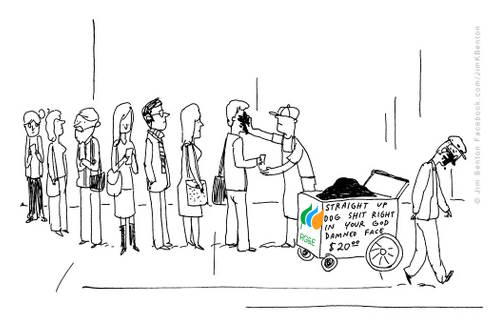 STRAIGHT UP
DOG SHIT RIGHT
IN YOUR GOD
DAMNED FACE
$20⁰⁰
RG&E
© Jim Benton Facebook.com/JimKBenton